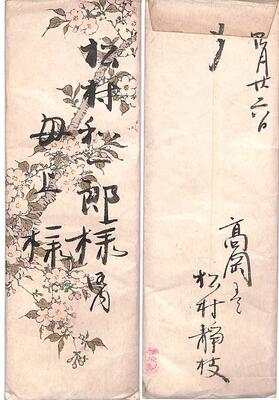 松村和一郎様
母上様
四月廿六日
高岡にて
松村静枝